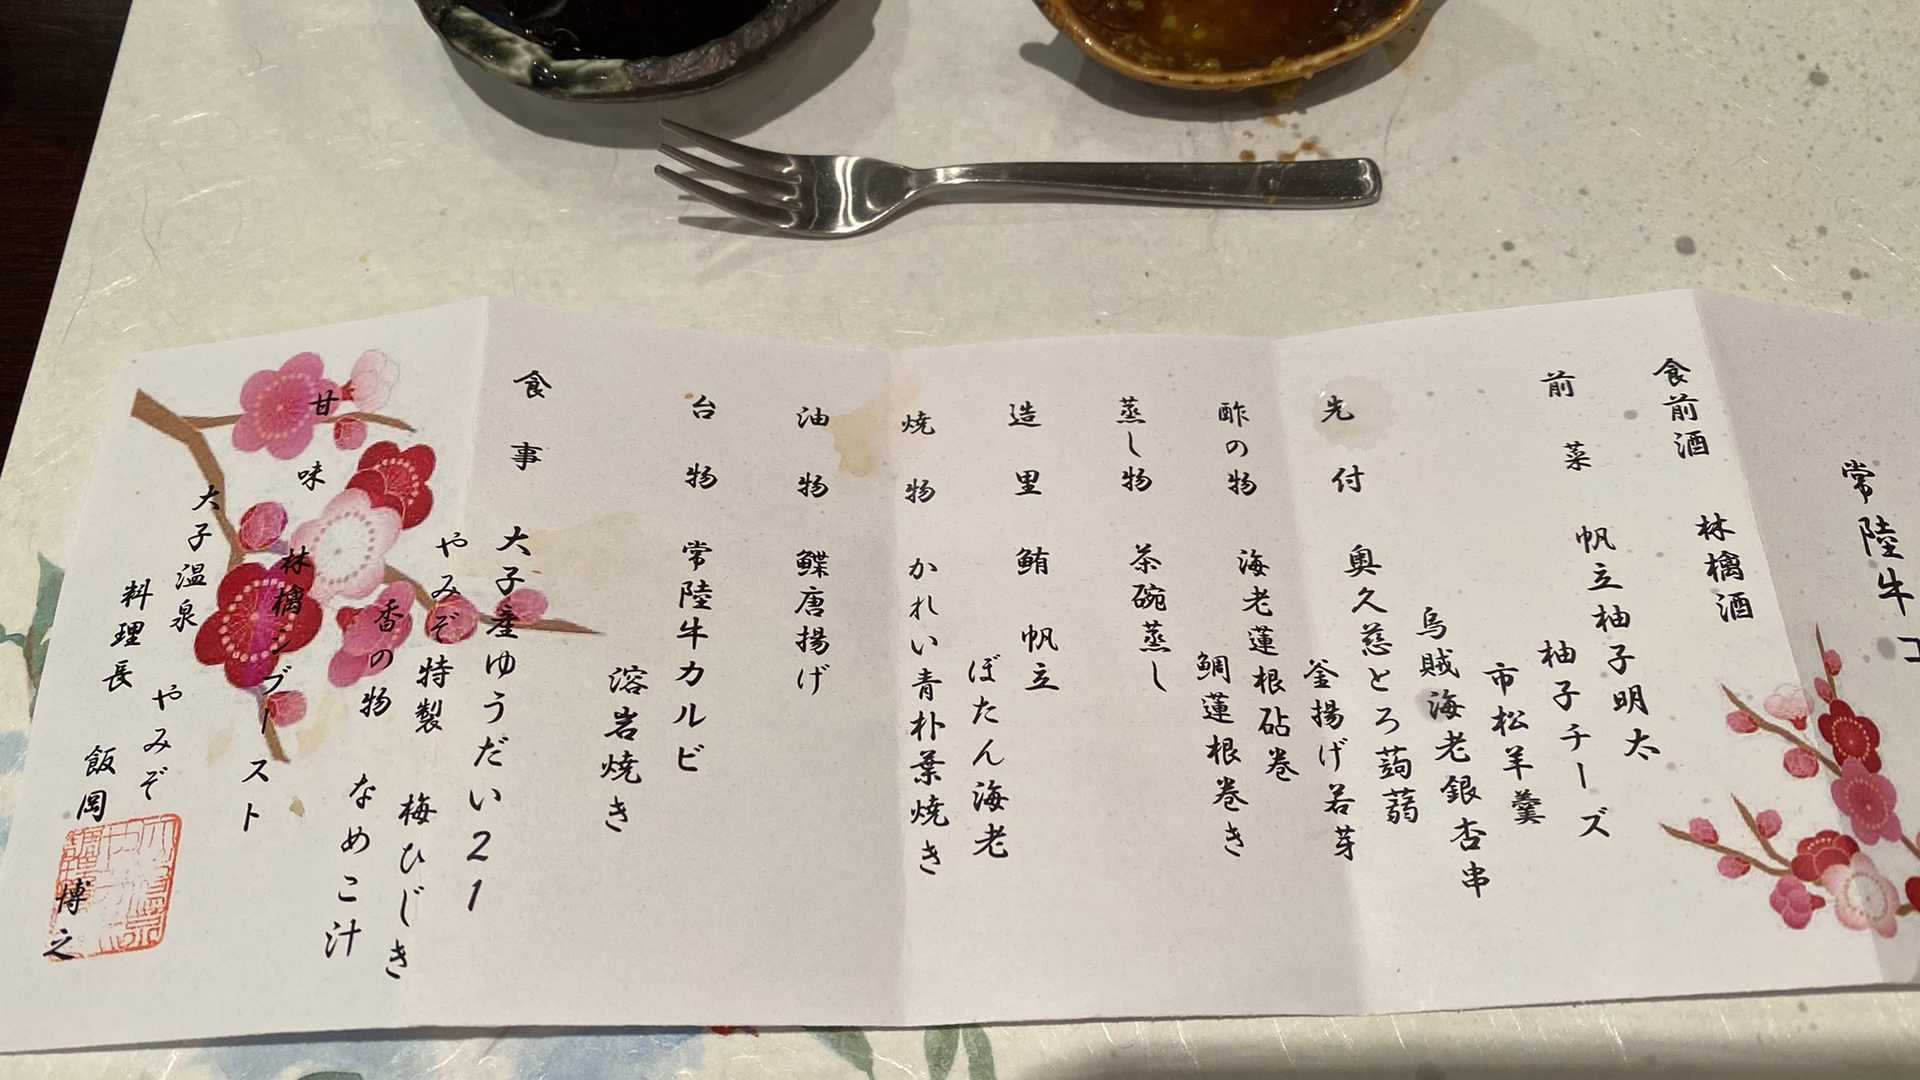 常陸牛コ
食前酒 林檎酒
前菜 帆立柚子明太
柚子チーズ
市松羊羹
烏賊海老銀杏串
先付 奥久慈とろ蒟蒻
釜揚げ若芽
酢の物 海老蓮根砧巻
鯛蓮根巻き
蒸し物 茶碗蒸し
造里 鮪 帆立
ぼたん海老
焼物 かれい青朴葉焼き
油物 鰈唐揚げ
台物 常陸牛カルビ
溶岩焼き
食事 大子産ゆうだい21
やみぞ特製 梅ひじき
香の物 なめこ汁
甘味 林檎シブースト
大子温泉 やみぞ
料理長 飯岡 博之